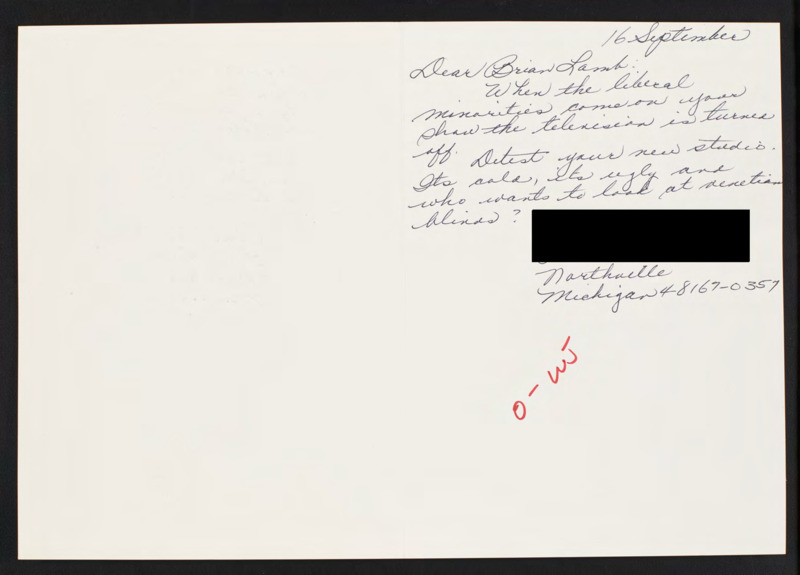 16 September
Dear Brian Lamb:
When the liberal
minorities come on your
show the television is turned
off. Detest your new studio.
Its cold, its ugly and
who wants to look at venetian
blinds?
Northville
Michigan 48167-0357
O-W